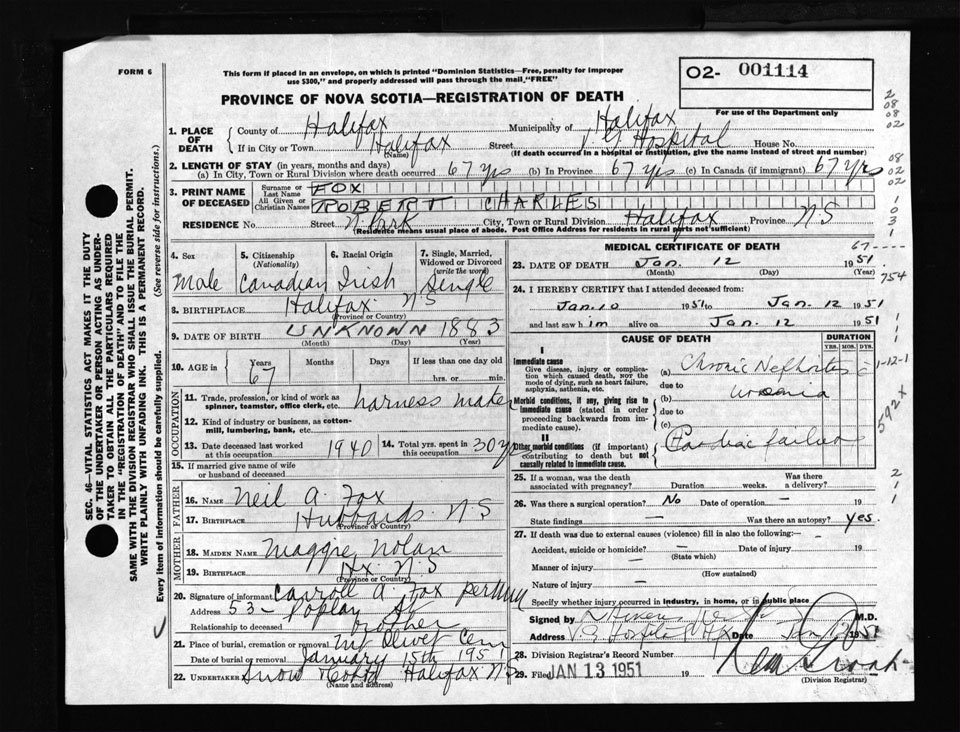 FORM 6
This form if placed in an envelope, on which is printed "Dominion Statistics—Free, penalty for improper
use $300," and properly addressed will pass through the mail "FREE"
O2- 001114
For use of the Department only
PROVINCE OF NOVA SCOTIA—REGISTRATION OF DEATH
1. PLACE OF DEATH
County of Halifax Municipality of Halifax
If in City or Town Halifax Street V G Hospital House No.
(Name) (If death occurred in a hospital or institution, give the name instead of street and number)
2. LENGTH OF STAY (in years, months and days)
(a) In City, Town or Rural Division where death occurred 67 yrs (b) In Province 67 yrs (c) In Canada (if immigrant) 67 yrs
3. PRINT NAME OF DECEASED
Surname or Last Name FOX
All Given or Christian Names ROBERT CHARLES
RESIDENCE No. Street N. Park City, Town or Rural Division Halifax Province N S
(Residence means usual place of abode. Post Office Address for residents in rural parts not sufficient)
4. Sex
Male
5. Citizenship (Nationality)
Canadian
6. Racial Origin
Irish
7. Single, Married, Widowed or Divorced (write the word)
Single
8. BIRTHPLACE Halifax N S
(Province or Country)
9. DATE OF BIRTH UNKNOWN 1883
(Month) (Day) (Year)
10. AGE in Years Months Days If less than one day old
67 hrs. or min.
OCCUPATION
11. Trade, profession, or kind of work as harness maker
spinner, teamster, office clerk, etc.
12. Kind of industry or business, as cotton-
mill, lumbering, bank, etc.
13. Date deceased last worked at this occupation 1940
14. Total yrs. spent in this occupation 30 yrs
15. If married give name of wife
or husband of deceased
FATHER
16. NAME Neil A. Fox
17. BIRTHPLACE Hubbards N S
(Province or Country)
MOTHER
18. MAIDEN NAME Maggie Nolan
19. BIRTHPLACE Hx. N. S
(Province or Country)
20. Signature of informant Carroll A. Fox per
Address 53- Poplar St
Relationship to deceased brother
21. Place of burial, cremation or removal Mt Olivet Cem
Date of burial or removal January 15th 1951
22. UNDERTAKER Snow Halifax N S
(Name and address)
MEDICAL CERTIFICATE OF DEATH
23. DATE OF DEATH Jan. 12 1951
(Month) (Day) (Year)
24. I HEREBY CERTIFY that I attended deceased from:
Jan. 10 1951 to Jan. 12 1951
and last saw him alive on Jan. 12 1951
CAUSE OF DEATH
DURATION
YRS. MOS. DYS.
I
Immediate cause
Give disease, injury or complica-
tion which caused death, not the
mode of dying, such as heart failure,
asphyxia, asthenia, etc.
(a) Chronic Nephritis
due to
Morbid conditions, if any, giving rise to
immediate cause (stated in order
proceeding backwards from im-
mediate cause).
(b) uremia
due to
(c)
II
Other morbid conditions (if important)
contributing to death but not
causally related to immediate cause.
Cardiac failure
25. If a woman, was the death Was there
associated with pregnancy? Duration weeks. a delivery?
26. Was there a surgical operation? No Date of operation — 19
State findings — Was there an autopsy? Yes.
27. If death was due to external causes (violence) fill in also the following:—
Accident, suicide or homicide? — Date of injury 19
(State which)
Manner of injury —
(How sustained)
Nature of injury —
Specify whether injury occurred in industry, in home, or in public place
Signed by M.D.
Address V. G. Hospital Hfx Date Jan 1951
28. Division Registrar's Record Number
29. Filed JAN 13 1951 19
(Division Registrar)
SEC. 46—VITAL STATISTICS ACT MAKES IT THE DUTY
OF THE UNDERTAKER OR PERSON ACTING AS UNDER-
TAKER TO OBTAIN ALL THE PARTICULARS REQUIRED
IN THE "REGISTRATION OF DEATH" AND TO FILE THE
SAME WITH THE DIVISION REGISTRAR WHO SHALL ISSUE THE BURIAL PERMIT.
WRITE PLAINLY WITH UNFADING INK. THIS IS A PERMANENT RECORD.
Every item of information should be carefully supplied. (See reverse side for instructions.)
2
08
08
02
08
02
02
1
0
3
1
67----
754
1
1
1
1-12-1
592x
2
1
1